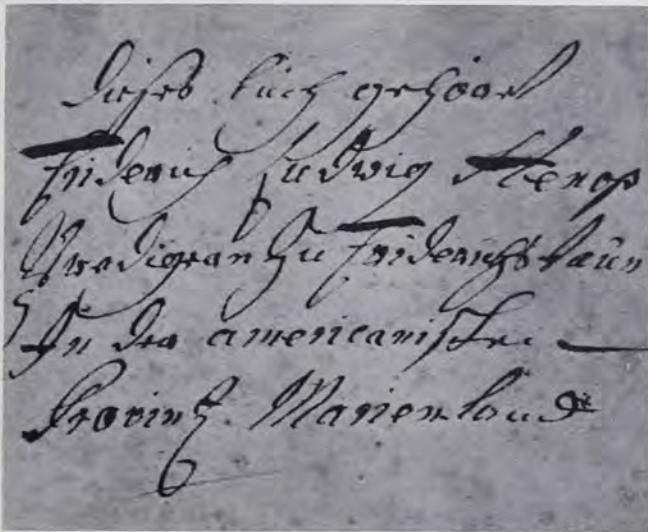 Dieses buch gehöret
Friderich Ludwig Henop
Prediger an Zu Friderichstaun
In der americanischen
Provintz. Marienland